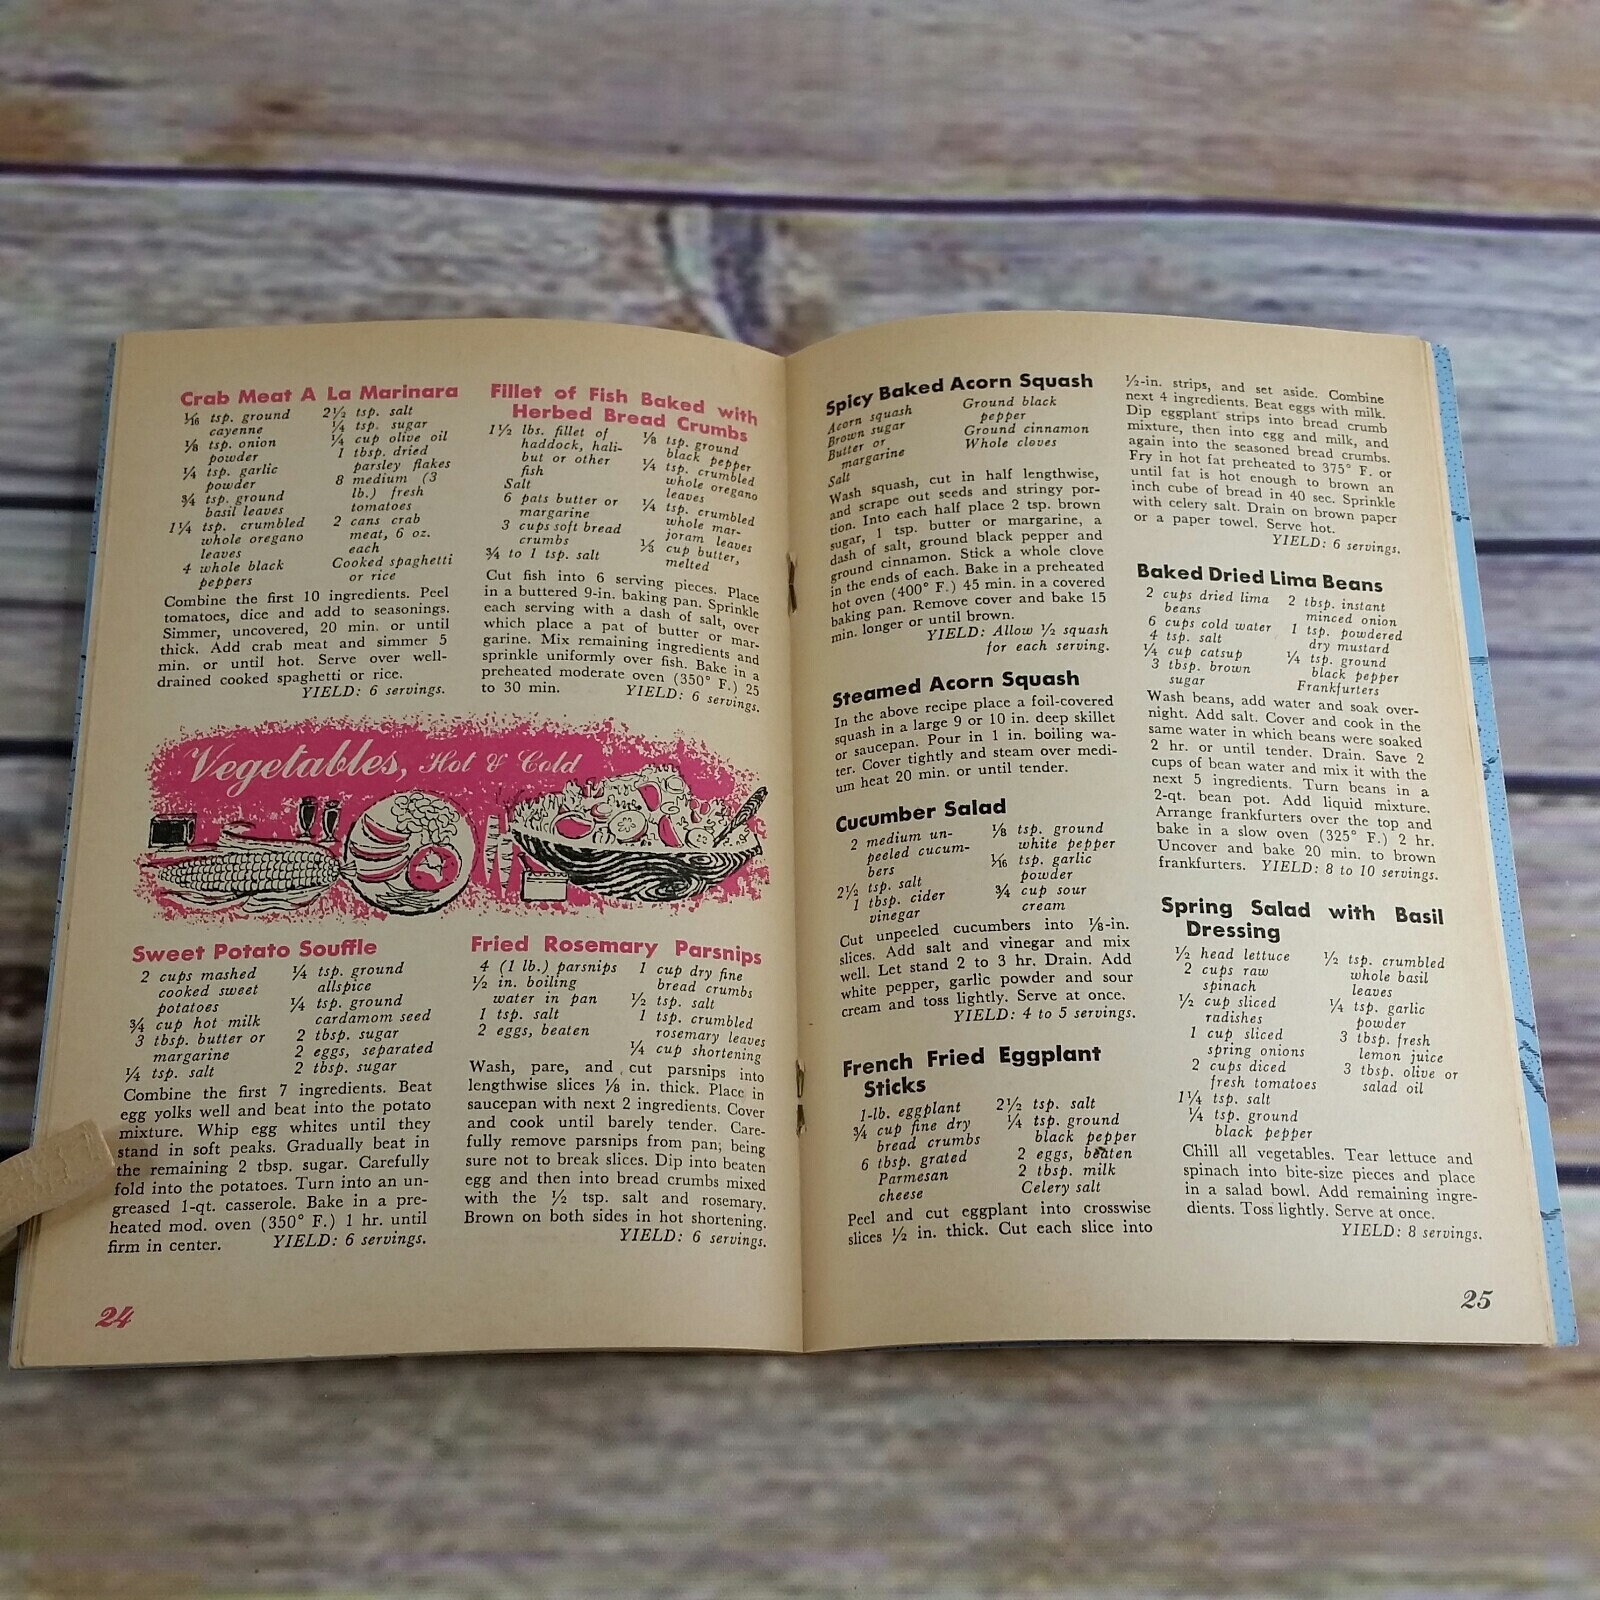 Crab Meat A La Marinara
1/16 tsp. ground
cayenne
1/8 tsp. onion
powder
1/4 tsp. garlic
powder
3/4 tsp. ground
basil leaves
1 1/4 tsp. crumbled
whole oregano
leaves
4 whole black
peppers
2 1/2 tsp. salt
1/4 tsp. sugar
1/4 cup olive oil
1 tbsp. dried
parsley flakes
8 medium (3
lb.) fresh
tomatoes
2 cans crab
meat, 6 oz.
each
Cooked spaghetti
or rice
Combine the first 10 ingredients. Peel
tomatoes, dice and add to seasonings.
Simmer, uncovered, 20 min. or until
thick. Add crab meat and simmer 5
min. or until hot. Serve over well-
drained cooked spaghetti or rice.
YIELD: 6 servings.
Fillet of Fish Baked with
Herbed Bread Crumbs
1 1/2 lbs. fillet of
haddock, hali-
but or other
fish
Salt
6 pats butter or
margarine
3 cups soft bread
crumbs
3/4 to 1 tsp. salt
1/8 tsp. ground
black pepper
1/4 tsp. crumbled
whole oregano
leaves
1/4 tsp. crumbled
whole mar-
joram leaves
1/3 cup butter,
melted
Cut fish into 6 serving pieces. Place
in a buttered 9-in. baking pan. Sprinkle
each serving with a dash of salt, over
which place a pat of butter or mar-
garine. Mix remaining ingredients and
sprinkle uniformly over fish. Bake in a
preheated moderate oven (350° F.) 25
to 30 min. YIELD: 6 servings.
Vegetables, Hot & Cold
Sweet Potato Souffle
2 cups mashed
cooked sweet
potatoes
3/4 cup hot milk
3 tbsp. butter or
margarine
1/4 tsp. salt
1/4 tsp. ground
allspice
1/4 tsp. ground
cardamom seed
2 tbsp. sugar
2 eggs, separated
2 tbsp. sugar
Combine the first 7 ingredients. Beat
egg yolks well and beat into the potato
mixture. Whip egg whites until they
stand in soft peaks. Gradually beat in
the remaining 2 tbsp. sugar. Carefully
fold into the potatoes. Turn into an un-
greased 1-qt. casserole. Bake in a pre-
heated mod. oven (350° F.) 1 hr. until
firm in center. YIELD: 6 servings.
Fried Rosemary Parsnips
4 (1 lb.) parsnips
1/2 in. boiling
water in pan
1 tsp. salt
2 eggs, beaten
1 cup dry fine
bread crumbs
1/2 tsp. salt
1 tsp. crumbled
rosemary leaves
1/4 cup shortening
Wash, pare, and cut parsnips into
lengthwise slices 1/8 in. thick. Place in
saucepan with next 2 ingredients. Cover
and cook until barely tender. Care-
fully remove parsnips from pan; being
sure not to break slices. Dip into beaten
egg and then into bread crumbs mixed
with the 1/2 tsp. salt and rosemary.
Brown on both sides in hot shortening.
YIELD: 6 servings.
24
Spicy Baked Acorn Squash
Acorn squash
Brown sugar
Butter or
margarine
Salt
Ground black
pepper
Ground cinnamon
Whole cloves
Wash squash, cut in half lengthwise,
and scrape out seeds and stringy por-
tion. Into each half place 2 tsp. brown
sugar, 1 tsp. butter or margarine, a
dash of salt, ground black pepper and
ground cinnamon. Stick a whole clove
in the ends of each. Bake in a preheated
hot oven (400° F.) 45 min. in a covered
baking pan. Remove cover and bake 15
min. longer or until brown.
YIELD: Allow 1/2 squash
for each serving.
Steamed Acorn Squash
In the above recipe place a foil-covered
squash in a large 9 or 10 in. deep skillet
or saucepan. Pour in 1 in. boiling wa-
ter. Cover tightly and steam over medi-
um heat 20 min. or until tender.
Cucumber Salad
2 medium un-
peeled cucum-
bers
2 1/2 tsp. salt
1 tbsp. cider
vinegar
1/8 tsp. ground
white pepper
1/16 tsp. garlic
powder
3/4 cup sour
cream
Cut unpeeled cucumbers into 1/8-in.
slices. Add salt and vinegar and mix
well. Let stand 2 to 3 hr. Drain. Add
white pepper, garlic powder and sour
cream and toss lightly. Serve at once.
YIELD: 4 to 5 servings.
French Fried Eggplant
Sticks
1-lb. eggplant
3/4 cup fine dry
bread crumbs
6 tbsp. grated
Parmesan
cheese
2 1/2 tsp. salt
1/4 tsp. ground
black pepper
2 eggs, beaten
2 tbsp. milk
Celery salt
Peel and cut eggplant into crosswise
slices 1/2 in. thick. Cut each slice into
1/2-in. strips, and set aside. Combine
next 4 ingredients. Beat eggs with milk.
Dip eggplant strips into bread crumb
mixture, then into egg and milk, and
again into the seasoned bread crumbs.
Fry in hot fat preheated to 375° F. or
until fat is hot enough to brown an
inch cube of bread in 40 sec. Sprinkle
with celery salt. Drain on brown paper
or a paper towel. Serve hot.
YIELD: 6 servings.
Baked Dried Lima Beans
2 cups dried lima
beans
6 cups cold water
4 tsp. salt
1/4 cup catsup
3 tbsp. brown
sugar
2 tbsp. instant
minced onion
1 tsp. powdered
dry mustard
1/4 tsp. ground
black pepper
Frankfurters
Wash beans, add water and soak over-
night. Add salt. Cover and cook in the
same water in which beans were soaked
2 hr. or until tender. Drain. Save 2
cups of bean water and mix it with the
next 5 ingredients. Turn beans in a
2-qt. bean pot. Add liquid mixture.
Arrange frankfurters over the top and
bake in a slow oven (325° F.) 2 hr.
Uncover and bake 20 min. to brown
frankfurters. YIELD: 8 to 10 servings.
Spring Salad with Basil
Dressing
1/2 head lettuce
2 cups raw
spinach
1/2 cup sliced
radishes
1 cup sliced
spring onions
2 cups diced
fresh tomatoes
1 1/4 tsp. salt
1/4 tsp. ground
black pepper
1/2 tsp. crumbled
whole basil
leaves
1/4 tsp. garlic
powder
3 tbsp. fresh
lemon juice
3 tbsp. olive or
salad oil
Chill all vegetables. Tear lettuce and
spinach into bite-size pieces and place
in a salad bowl. Add remaining ingre-
dients. Toss lightly. Serve at once.
YIELD: 8 servings.
25